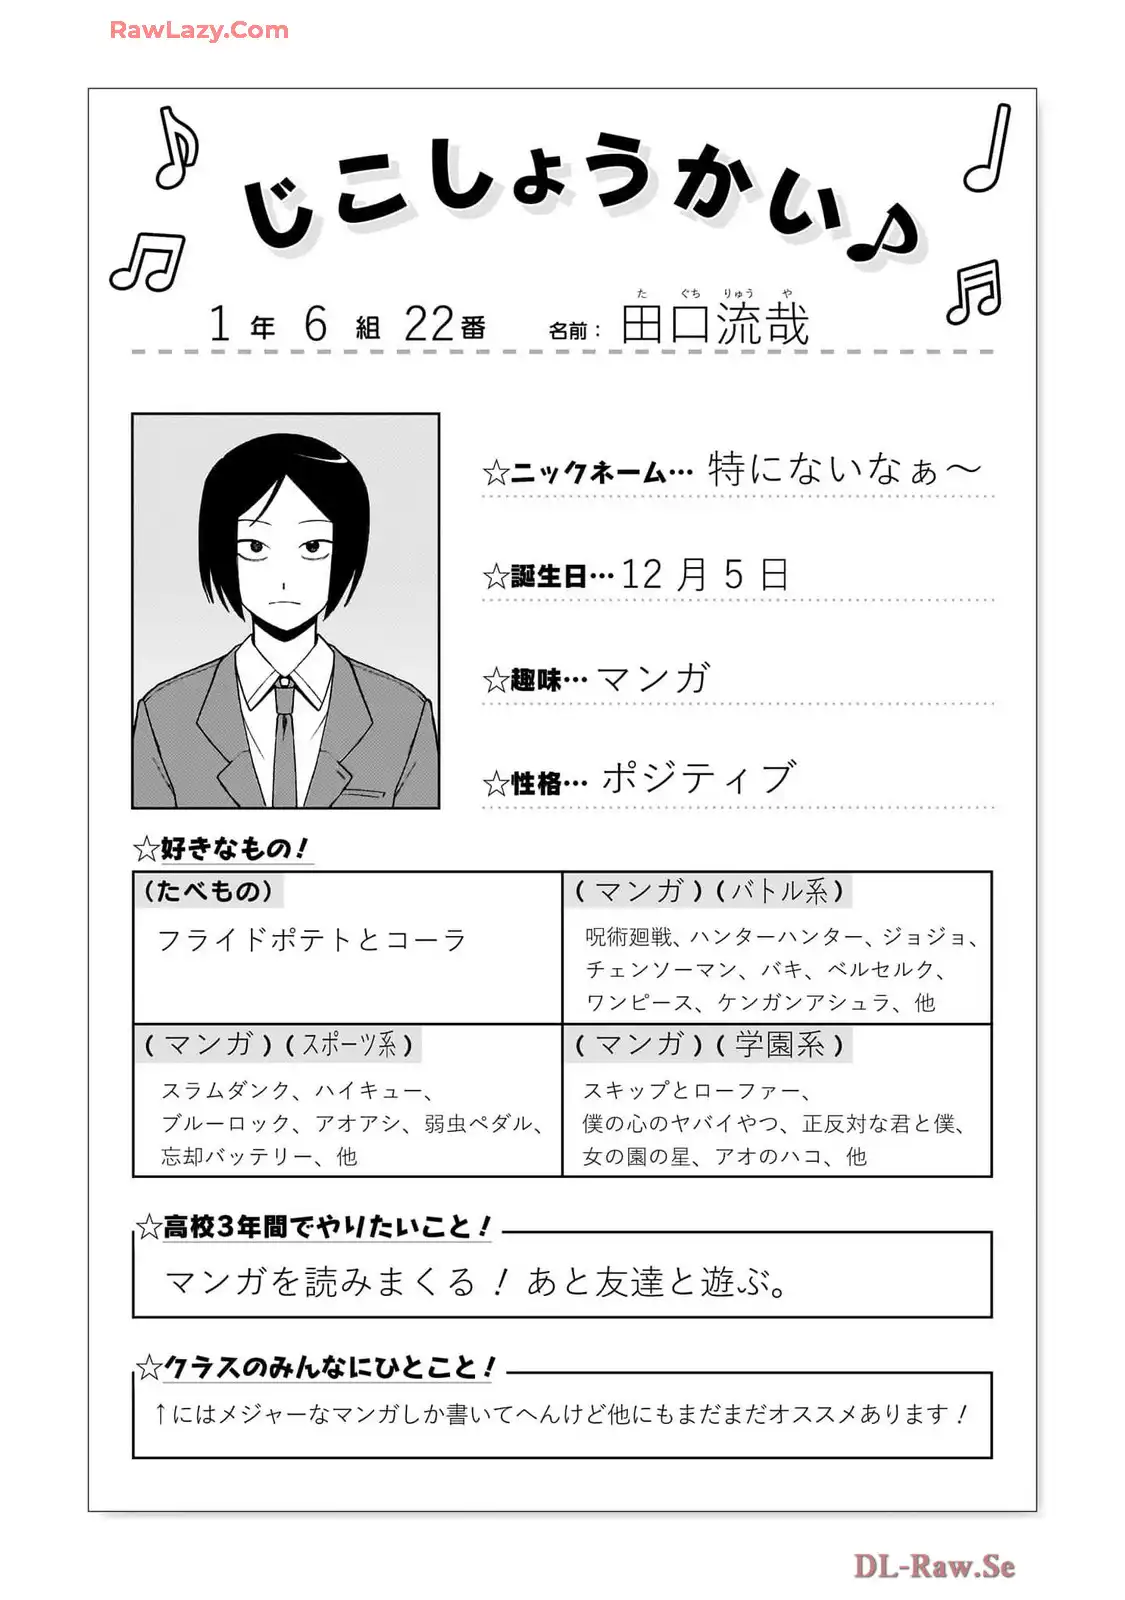 RawLazy.Com
じこしょうかい♪
1年 6組 22番 名前： 田口流哉
た ぐち りゅう や
☆ニックネーム… 特にないなぁ〜
☆誕生日… 12月5日
☆趣味… マンガ
☆性格… ポジティブ
☆好きなもの！
（たべもの）
フライドポテトとコーラ
（マンガ）（バトル系）
呪術廻戦、ハンターハンター、ジョジョ、
チェンソーマン、バキ、ベルセルク、
ワンピース、ケンガンアシュラ、他
（マンガ）（スポーツ系）
スラムダンク、ハイキュー、
ブルーロック、アオアシ、弱虫ペダル、
忘却バッテリー、他
（マンガ）（学園系）
スキップとローファー、
僕の心のヤバイやつ、正反対な君と僕、
女の園の星、アオのハコ、他
☆高校3年間でやりたいこと！
マンガを読みまくる！あと友達と遊ぶ。
☆クラスのみんなにひとこと！
↑にはメジャーなマンガしか書いてへんけど他にもまだまだオススメあります！
DL-Raw.Se